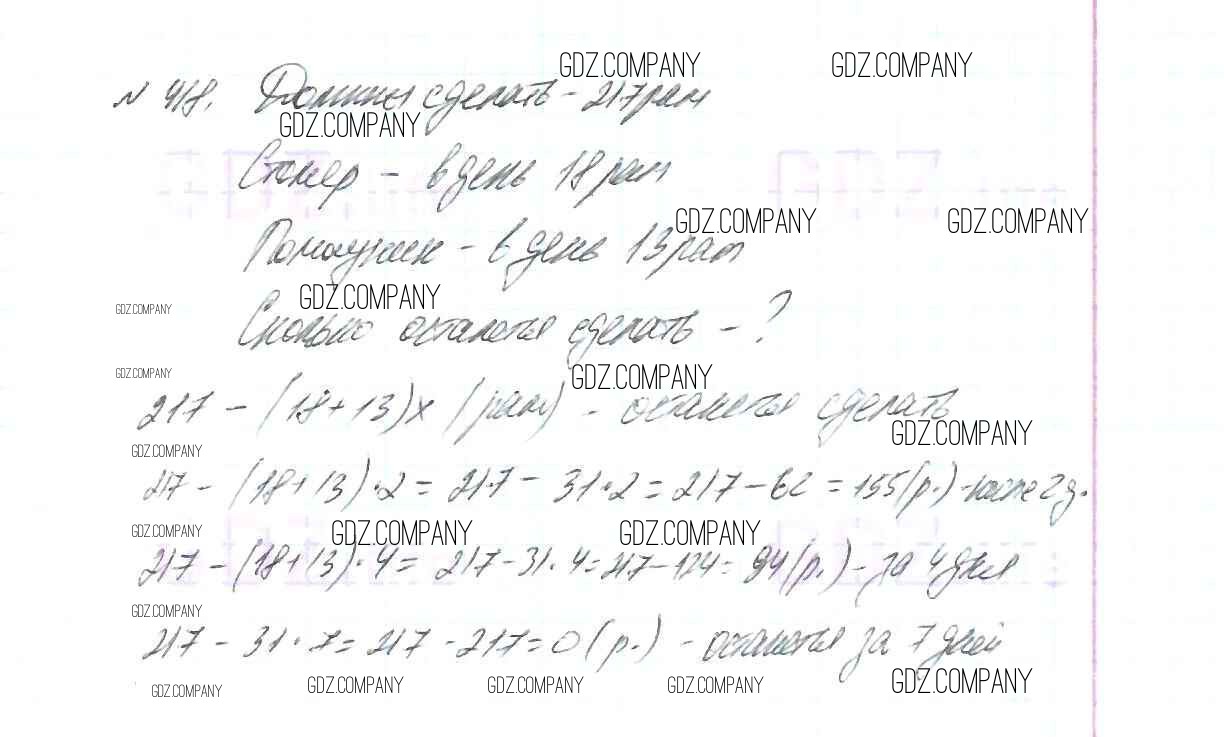 GDZ.COMPANY GDZ.COMPANY
№ 418. Должны сделать - 217 рам
GDZ.COMPANY
Столяр - в день 18 рам
GDZ.COMPANY GDZ.COMPANY
Помощник - в день 13 рам
GDZ.COMPANY GDZ.COMPANY
Сколько останется сделать - ?
GDZ.COMPANY GDZ.COMPANY
217 - (18+13)x (рам) - останется сделать
GDZ.COMPANY GDZ.COMPANY
217 - (18+13)·2 = 217 - 31·2 = 217 - 62 = 155(р.) - после 2 д.
GDZ.COMPANY GDZ.COMPANY GDZ.COMPANY
217 - (18+13)·4 = 217-31·4 = 217-124 = 94(р.) - за 4 дня
GDZ.COMPANY
217 - 31·7 = 217 - 217 = 0 (р.) - останется за 7 дней
GDZ.COMPANY GDZ.COMPANY GDZ.COMPANY GDZ.COMPANY GDZ.COMPANY